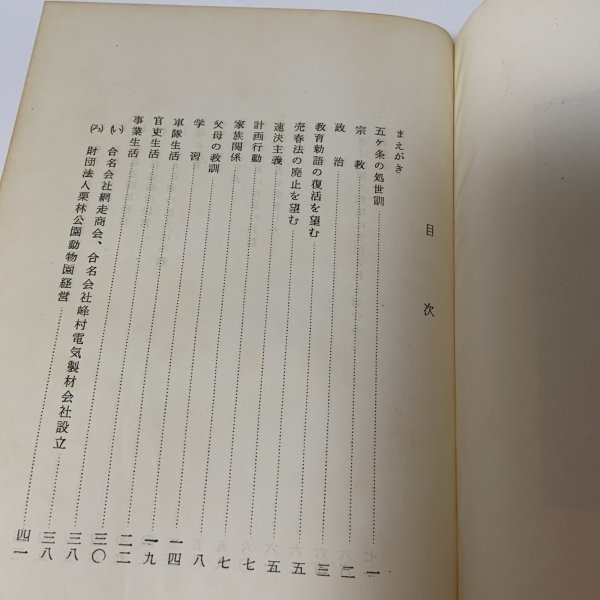 目次
まえがき
五ケ条の処世訓……一
宗教……二
政治……三
教育勅語の復活を望む……五
売春法の廃止を望む……五
速決主義……七
計画行動……七
家族関係……八
父母の教訓……一四
学習……一九
軍隊生活……二二
官吏生活……三〇
事業生活……三八
(い) 合名会社網走商会、合名会社峰村電気製材会社設立……三八
(ろ) 財団法人栗林公園動物園経営……四一